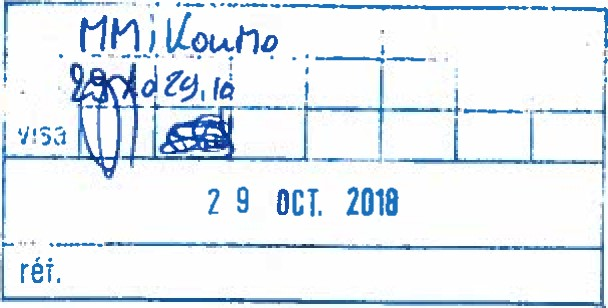 MM KouMo
29.10 29.10
visa
29 OCT. 2018
réf.